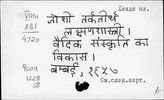 Хинди яз.
VIII
861
4720
जोशी तर्कतीर्थ
लक्ष्मणशास्त्री।
वैदिक संस्कृति का
विकास।
बम्बई, १९५७
См. след. карт.
1229
38